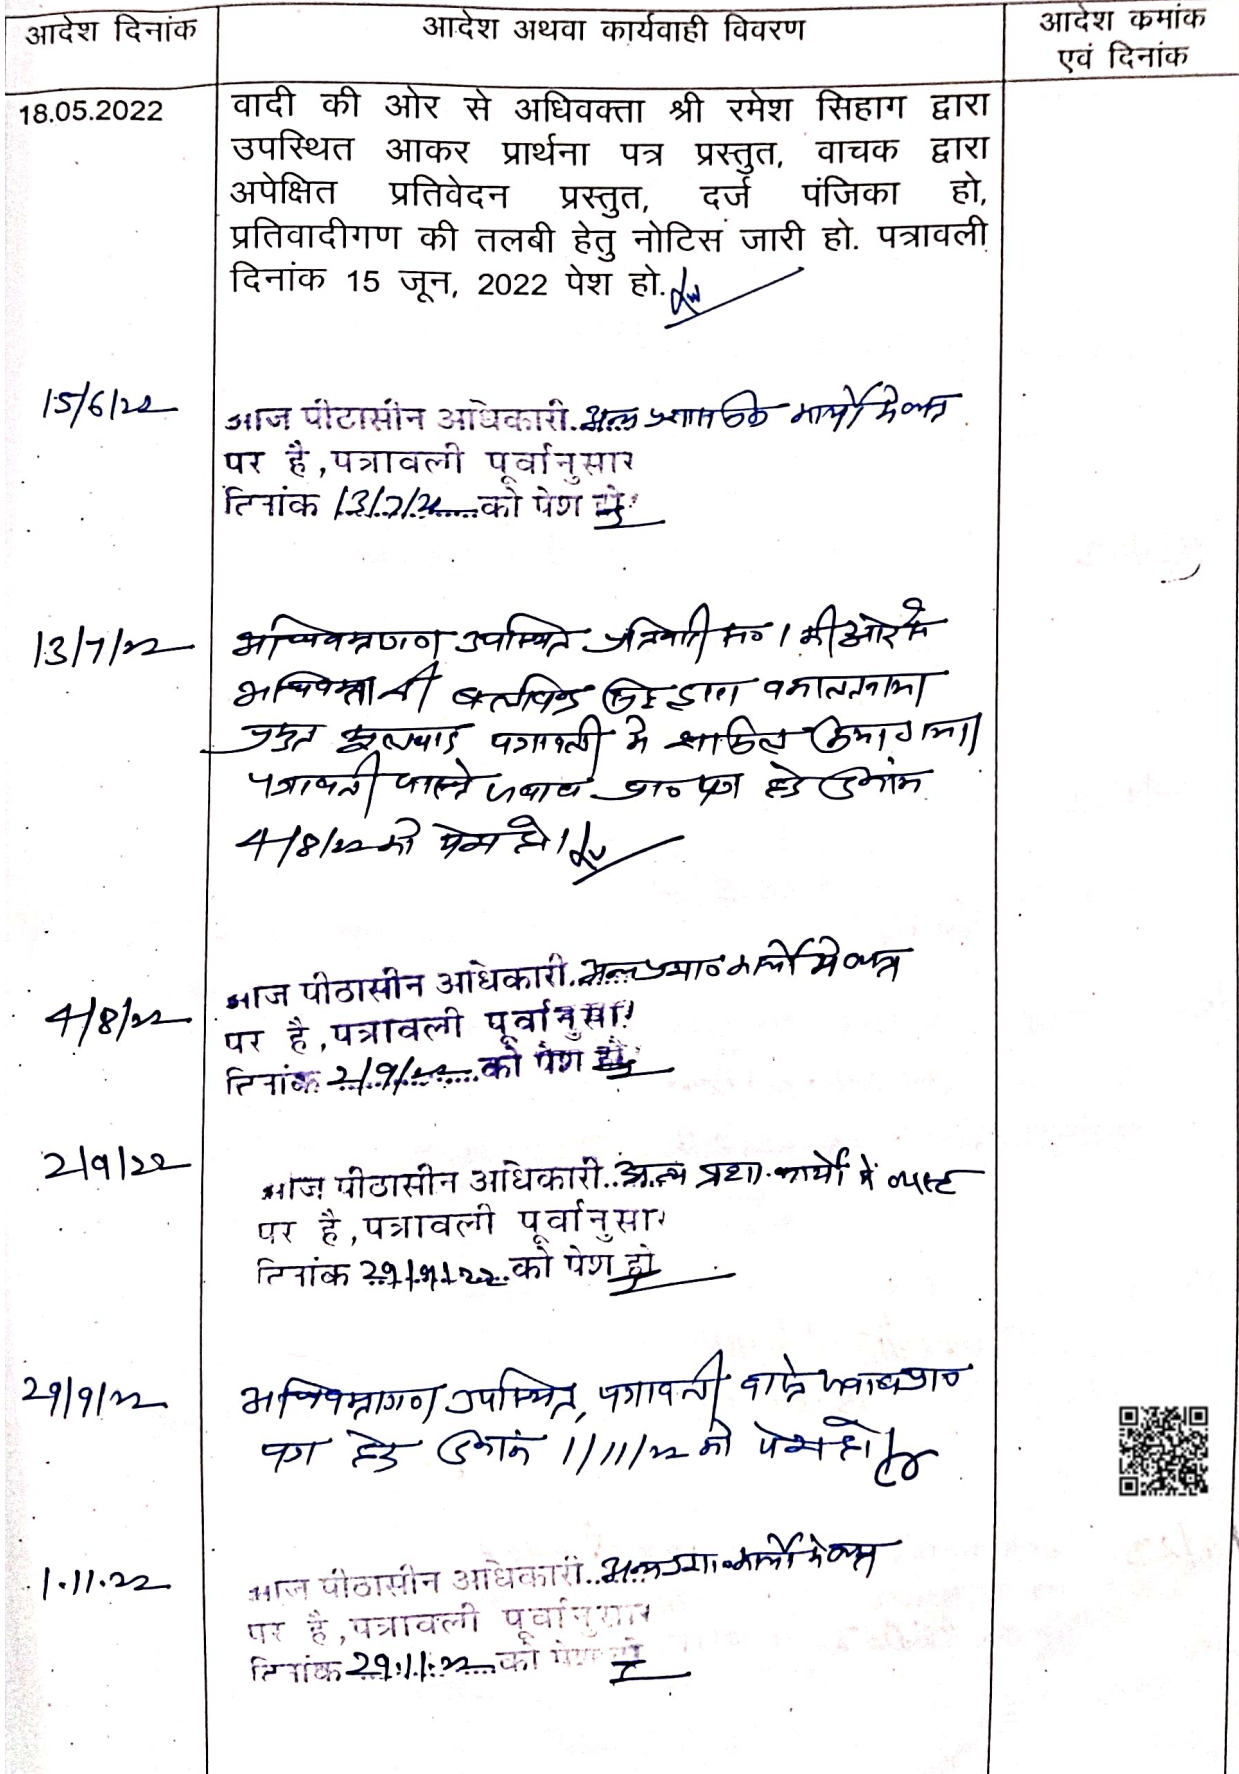 आदेश दिनांक
आदेश अथवा कार्यवाही विवरण
आदेश कमांक
एवं दिनांक
18.05.2022
वादी की ओर से अधिवक्ता श्री रमेश सिहाग द्वारा
उपस्थित आकर प्रार्थना पत्र प्रस्तुत, वाचक द्वारा
अपेक्षित प्रतिवेदन प्रस्तुत, दर्ज पंजिका हो,
प्रतिवादीगण की तलबी हेतु नोटिस जारी हो. पत्रावली
दिनांक 15 जून, 2022 पेश हो.
15/6/22
आज पीठासीन अधिकारी. अन्य प्रशासनिक कार्यो मे व्यस्त
पर है, पत्रावली पूर्वानुसार
दिनांक 13/7/22 को पेश हो
13/7/22
अधिवक्तागण उपस्थित प्रतिवादी स० 1 की ओर से
अधिवक्ता श्री सिंह द्वारा वकालतनामा
पत्रावली मे शामिल किया गया।
पत्रावली वास्ते जवाब प्रा० पत्र हेतु दिनांक
4/8/22 को पेश हो।
4/8/22
आज पीठासीन अधिकारी. अन्य प्रशा० कार्यो मे व्यस्त
पर है, पत्रावली पूर्वानुसार
दिनांक 2/9/22 को पेश हो
2/9/22
आज पीठासीन अधिकारी.. अन्य प्रशा. कार्यो मे व्यस्त
पर है, पत्रावली पूर्वानुसार
दिनांक 29/9/22 को पेश हो
29/9/22
अधिवक्तागण उपस्थित, पत्रावली वास्ते जवाब प्रा०
पत्र हेतु दिनांक 1/11/22 को पेश हो।
1.11.22
आज पीठासीन अधिकारी.. अन्य प्रशा. कार्यो मे व्यस्त
पर है, पत्रावली पूर्वानुसार
दिनांक 29.11.22 को पेश हो